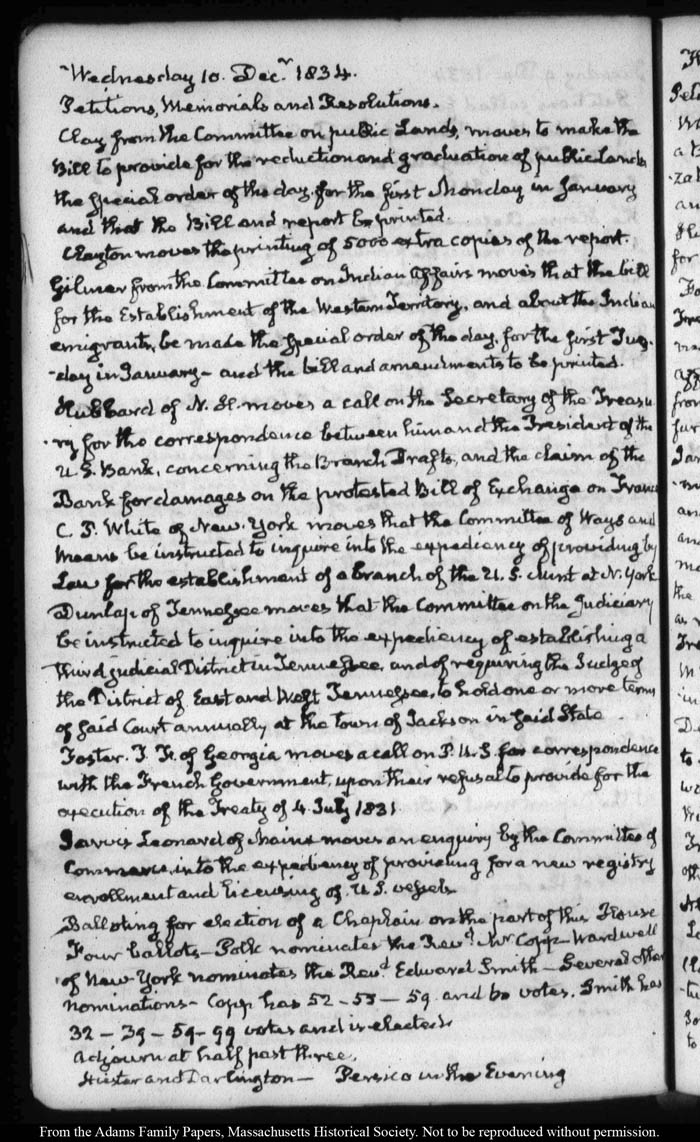 Wednesday 10. Decr. 1834.
Petitions, Memorials and Resolutions.
Clay from the Committee on public Lands, moves to make the
Bill to provide for the reduction and graduation of public Lands
the special order of the day for the first Monday in January
and that the Bill and report be printed.
Clayton moves the printing of 5000 extra copies of the report.
Gilmer from the Committee on Indian affairs moves that the bill
for the Establishment of the Western Territory, and about the Indian
emigrants, be made the special order of the day, for the first Tues-
-day in January - and the bill and amendments to be printed.
Hubbard of N. H. moves a call on the Secretary of the Treasu
-ry for the correspondence between him and the President of the
U. S. Bank, concerning the Branch Drafts, and the claim of the
Bank for damages on the protested Bill of Exchange on France
C. P. White of New-York moves that the Committee of Ways and
Means be instructed to inquire into the expediency of providing by
Law for the establishment of a branch of the U. S. Mint at N. York
Dunlap of Tennessee moves that the Committee on the Judiciary
be instructed to inquire into the expediency of establishing a
third Judicial District in Tennessee, and of requiring the Judge of
the District of East and West Tennessee, to hold one or more terms
of said Court annually at the town of Jackson in said State.
Foster. T. F. of Georgia moves a call on P. U. S. for correspondence
with the French Government, upon their refusal to provide for the
execution of the Treaty of 4 July 1831
Jarvis Leonard of Maine moves an enquiry by the Committee of
Commerce, into the expediency of providing for a new registry
enrollment and licensing of U. S. vessels.
Balloting for election of a Chaplain on the part of this House
Four ballots - Polk nominates the Revd. Mr Copp - Wardwell
of New-York nominates the Revd. Edward Smith - Several other
nominations - Copp has 52 - 55 - 59 and 60 votes. Smith has
32 - 39 - 59 - 99 votes and is elected.
Adjourn at half past three.
Hiester and Darlington - Persico in the Evening
From the Adams Family Papers, Massachusetts Historical Society. Not to be reproduced without permission.